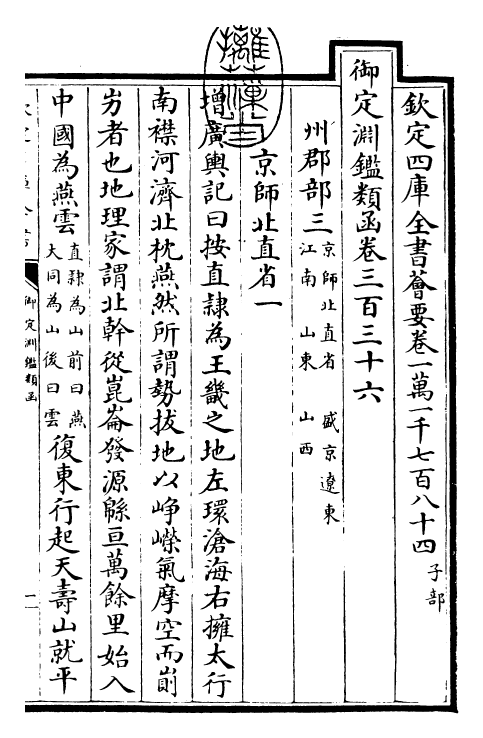 欽定四庫全書薈要卷一萬一千七百八十四 子部
御定淵鑑類函卷三百三十六
州郡部三 京師北直省 盛京遼東
江南 山東 山西
京師北直省一
增廣輿記曰按直隸為王畿之地左環滄海右擁太行
南襟河濟北枕燕然所謂勢拔地以崢嶸氣摩空而崱
屴者也地理家謂北幹從崑崙發源緜亘萬餘里始入
中國為燕雲 直隸為山前曰燕
大同為山後曰雲 復東行起天壽山就平
御定淵鑑類函